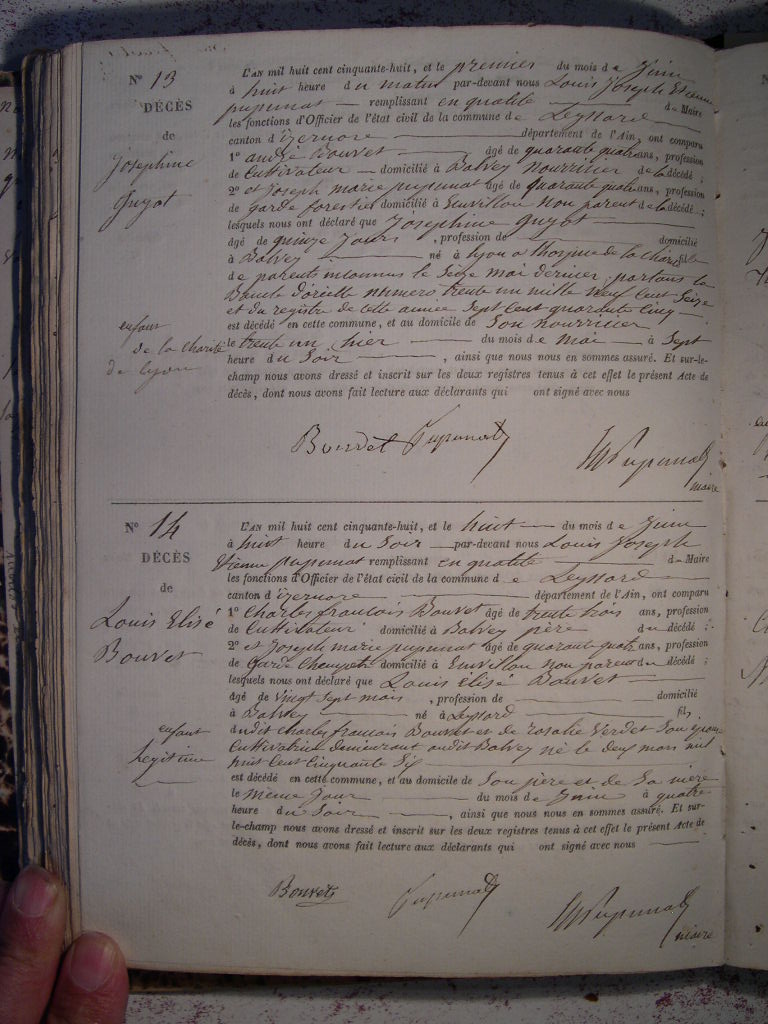 N° 13
DÉCÈS
de
Josephine
Guyot
enfant
de la charité
de lyon
L'AN mil huit cent cinquante-huit, et le premier du mois de Juin
à huit heure du matin par-devant nous Louis Joseph Etienne
pupunat remplissant en qualité de Maire
les fonctions d'Officier de l'état civil de la commune de Leyssard
canton d'izernore département de l'Ain, ont comparu
1° andré Bouvet âgé de quarante quatre ans, profession
de Cultivateur domicilié à Balvey nourricier de la décédé ;
2° et Joseph marie pupunat âgé de quarante quatre ans, profession
de garde forestier domicilié à Senvillou non parent de la décédé ;
lesquels nous ont déclaré que Josephine guyot
âgé de quinze Jours , profession de domicilié
à Balvey né à lyon a thospice de la charité fils
de parents inconnus le Seize mai dernier portant la
Boucle d'oreille numero trente un mille neuf Cent Seize
et du registre de cette année Sept Cent quarante Cinq
est décédé en cette commune, et au domicile de Son nourricier
le trente un hier du mois de mai à Sept
heure du Soir , ainsi que nous nous en sommes assuré. Et sur-le-
champ nous avons dressé et inscrit sur les deux registres tenus à cet effet le présent Acte de
décès, dont nous avons fait lecture aux déclarants qui ont signé avec nous
Bouvet Pupunat Pupunat
maire
N° 14
DÉCÈS
de
Louis Elisé
Bouvet
enfant
Legitime
L'AN mil huit cent cinquante-huit, et le huit du mois de Juin
à huit heure du Soir par-devant nous Louis Joseph
Etienne pupunat remplissant en qualité de Maire
les fonctions d'Officier de l'état civil de la commune de Leyssard
canton d'izernore département de l'Ain, ont comparu
1° Charles francois Bouvet âgé de trente trois ans, profession
de Cultivateur domicilié à Balvey père du décédé ;
2° et Joseph marie pupunat âgé de quarante quatre ans, profession
de Garde Champetre domicilié à Senvillou non parent du décédé ;
lesquels nous ont déclaré que Louis Elisé Bouvet
âgé de vingt sept mois , profession de domicilié
à Balvey né à Leyssard fils
dudit charles francois Bouvet et de rosalie Verdet Son epouse
Cultivatrice demeurant audit Balvey né le deux mars mil
huit Cent Cinquante Six
est décédé en cette commune, et au domicile de Son père et de Sa mère
le même Jour du mois de Juin à quatre
heure du Soir , ainsi que nous nous en sommes assuré. Et sur-
le-champ nous avons dressé et inscrit sur les deux registres tenus à cet effet le présent Acte de
décès, dont nous avons fait lecture aux déclarants qui ont signé avec nous
Bouvet Pupunat Pupunat
maire